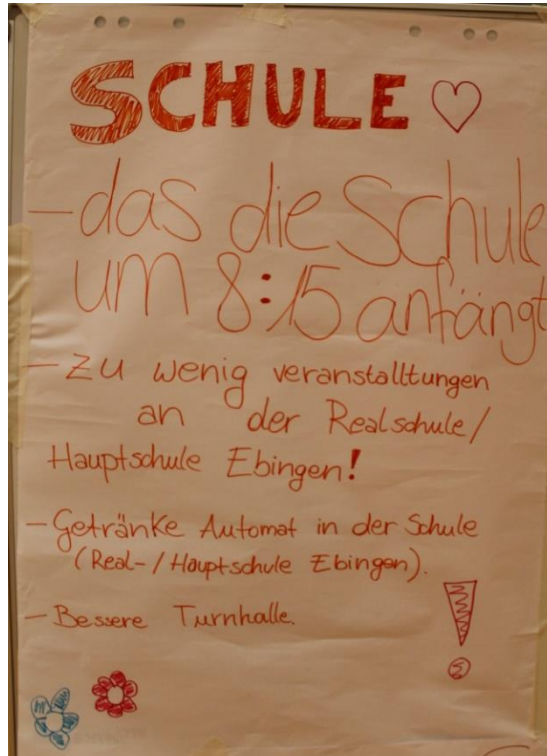 SCHULE
- das die Schule
um 8:15 anfängt
- zu wenig veranstalltungen
an der Realschule/
Hauptschule Ebingen!
- Getränke Automat in der Schule
(Real-/Hauptschule Ebingen).
- Bessere Turnhalle.
!